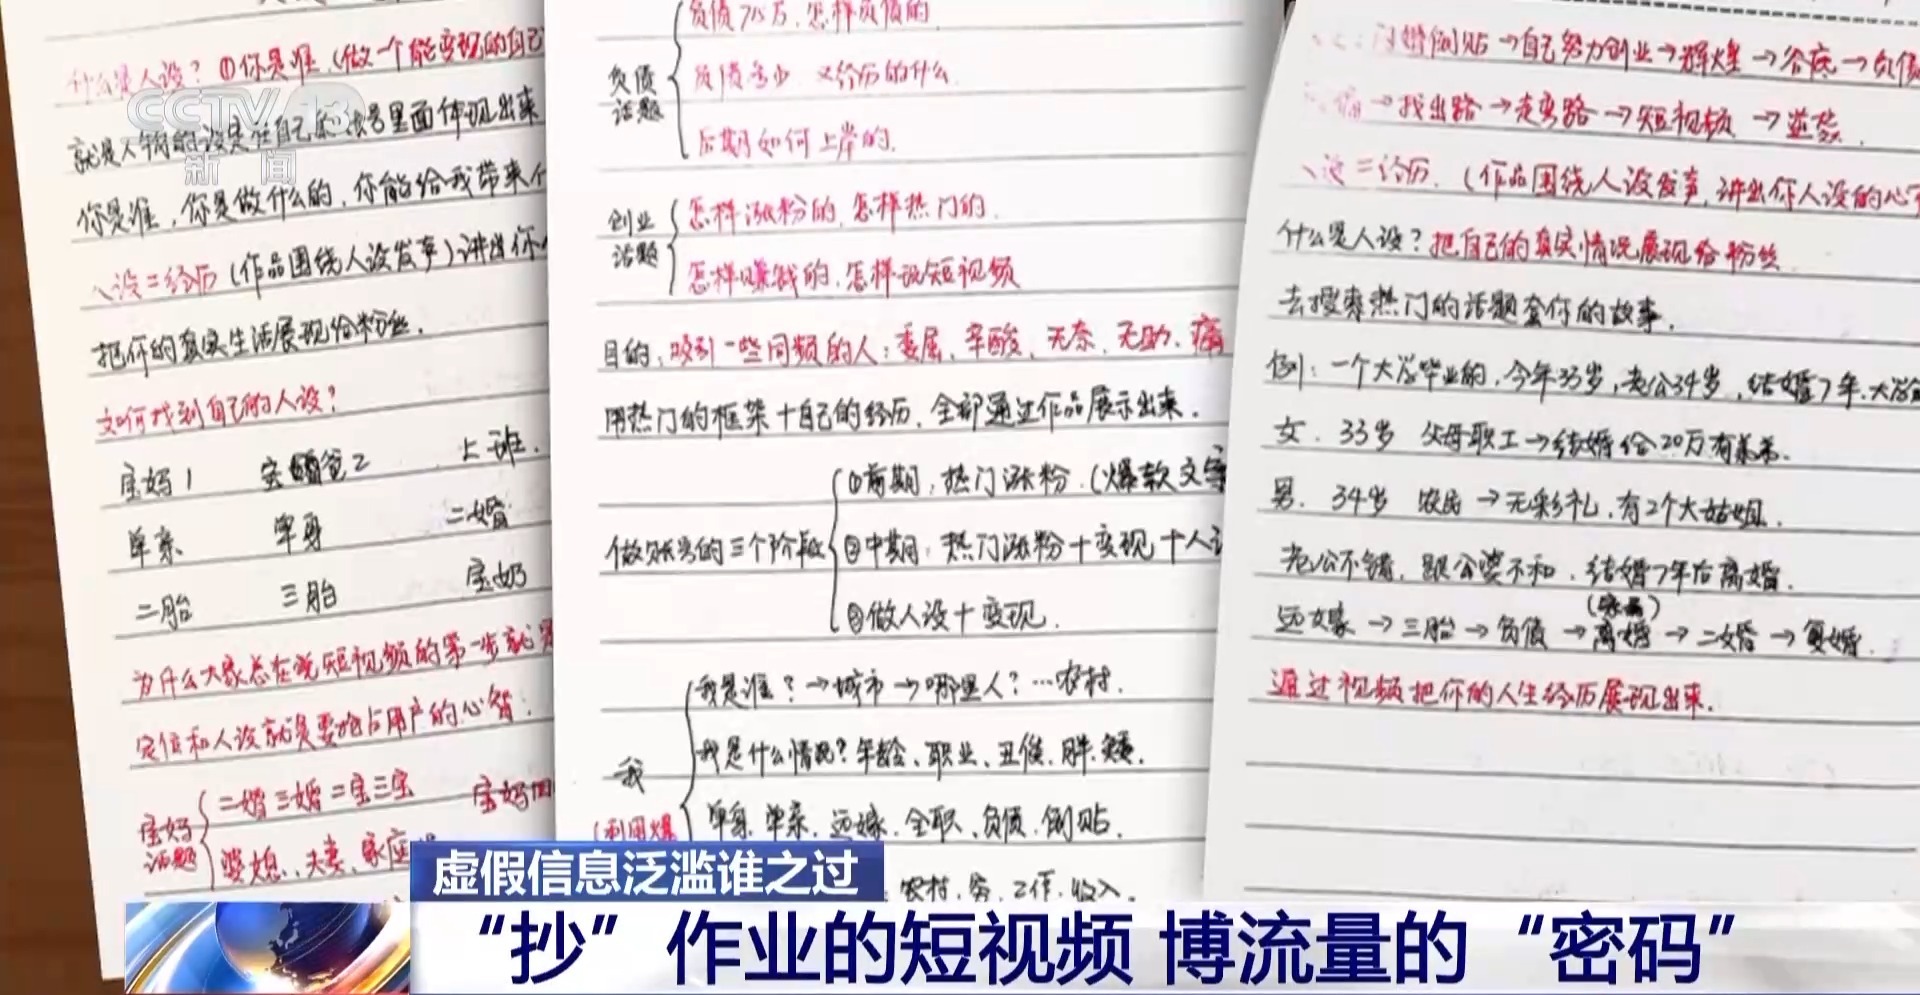 什么是人设？①你是谁（做一个能变现的自己
CCTV 13
新闻
就是人物的设定在自己的账号里面体现出来
你是谁，你是做什么的，你能给我带来什
人设=经历（作品围绕人设发声）讲出你
把你的真实生活展现给粉丝．
如何找到自己的人设？
宝妈1 宝爸2 上班．
单亲 单身 二婚
二胎 三胎 宝奶
为什么大家总在说短视频的第一步就是
定位和人设就是要抢占用户的心智：
宝妈话题 二婚三婚二宝三宝 宝妈
婆媳、夫妻、家庭
负债话题 负债715万．怎样负债的
负债多少．又经历的什么．
后期如何上岸的．
创业话题 怎样涨粉的．怎样热门的．
怎样赚钱的．怎样说短视频
目的：吸引一些同频的人：委屈、辛酸、无奈、无助．痛
用热门的框架+自己的经历．全部通过作品展示出来．
做账号的三个阶段 ①前期：热门涨粉．（爆款文案
②中期：热门涨粉+变现+人设
③做人设+变现．
我 我是谁？→城市→哪里人？…农村．
我是什么情况？年龄、职业、丑俊、胖、矮．
（利用爆 单身．单亲．远嫁．全职、负债．倒贴．
农村．穷．工作．收入．
闪婚倒贴→自己努力创业→辉煌→谷底→负债
→找出路→走弯路→短视频→逆袭．
人设=经历．（作品围绕人设发声，讲出你人设的心
什么是人设？把自己的真实情况展现给粉丝
去搜索热门的话题套你的故事．
例：一个大学毕业的．今年33岁，老公34岁，结婚7年．大学
女．33岁 父母职工→结婚给20万有弟弟．
男．34岁 农民→无彩礼．有2个大姑姐．
老公不错，跟公婆不和．结婚7年后离婚．
远嫁→三胎→负债→离婚→二婚→复婚．
通过视频把你的人生经历展现出来．
虚假信息泛滥谁之过
“抄”作业的短视频 博流量的“密码”